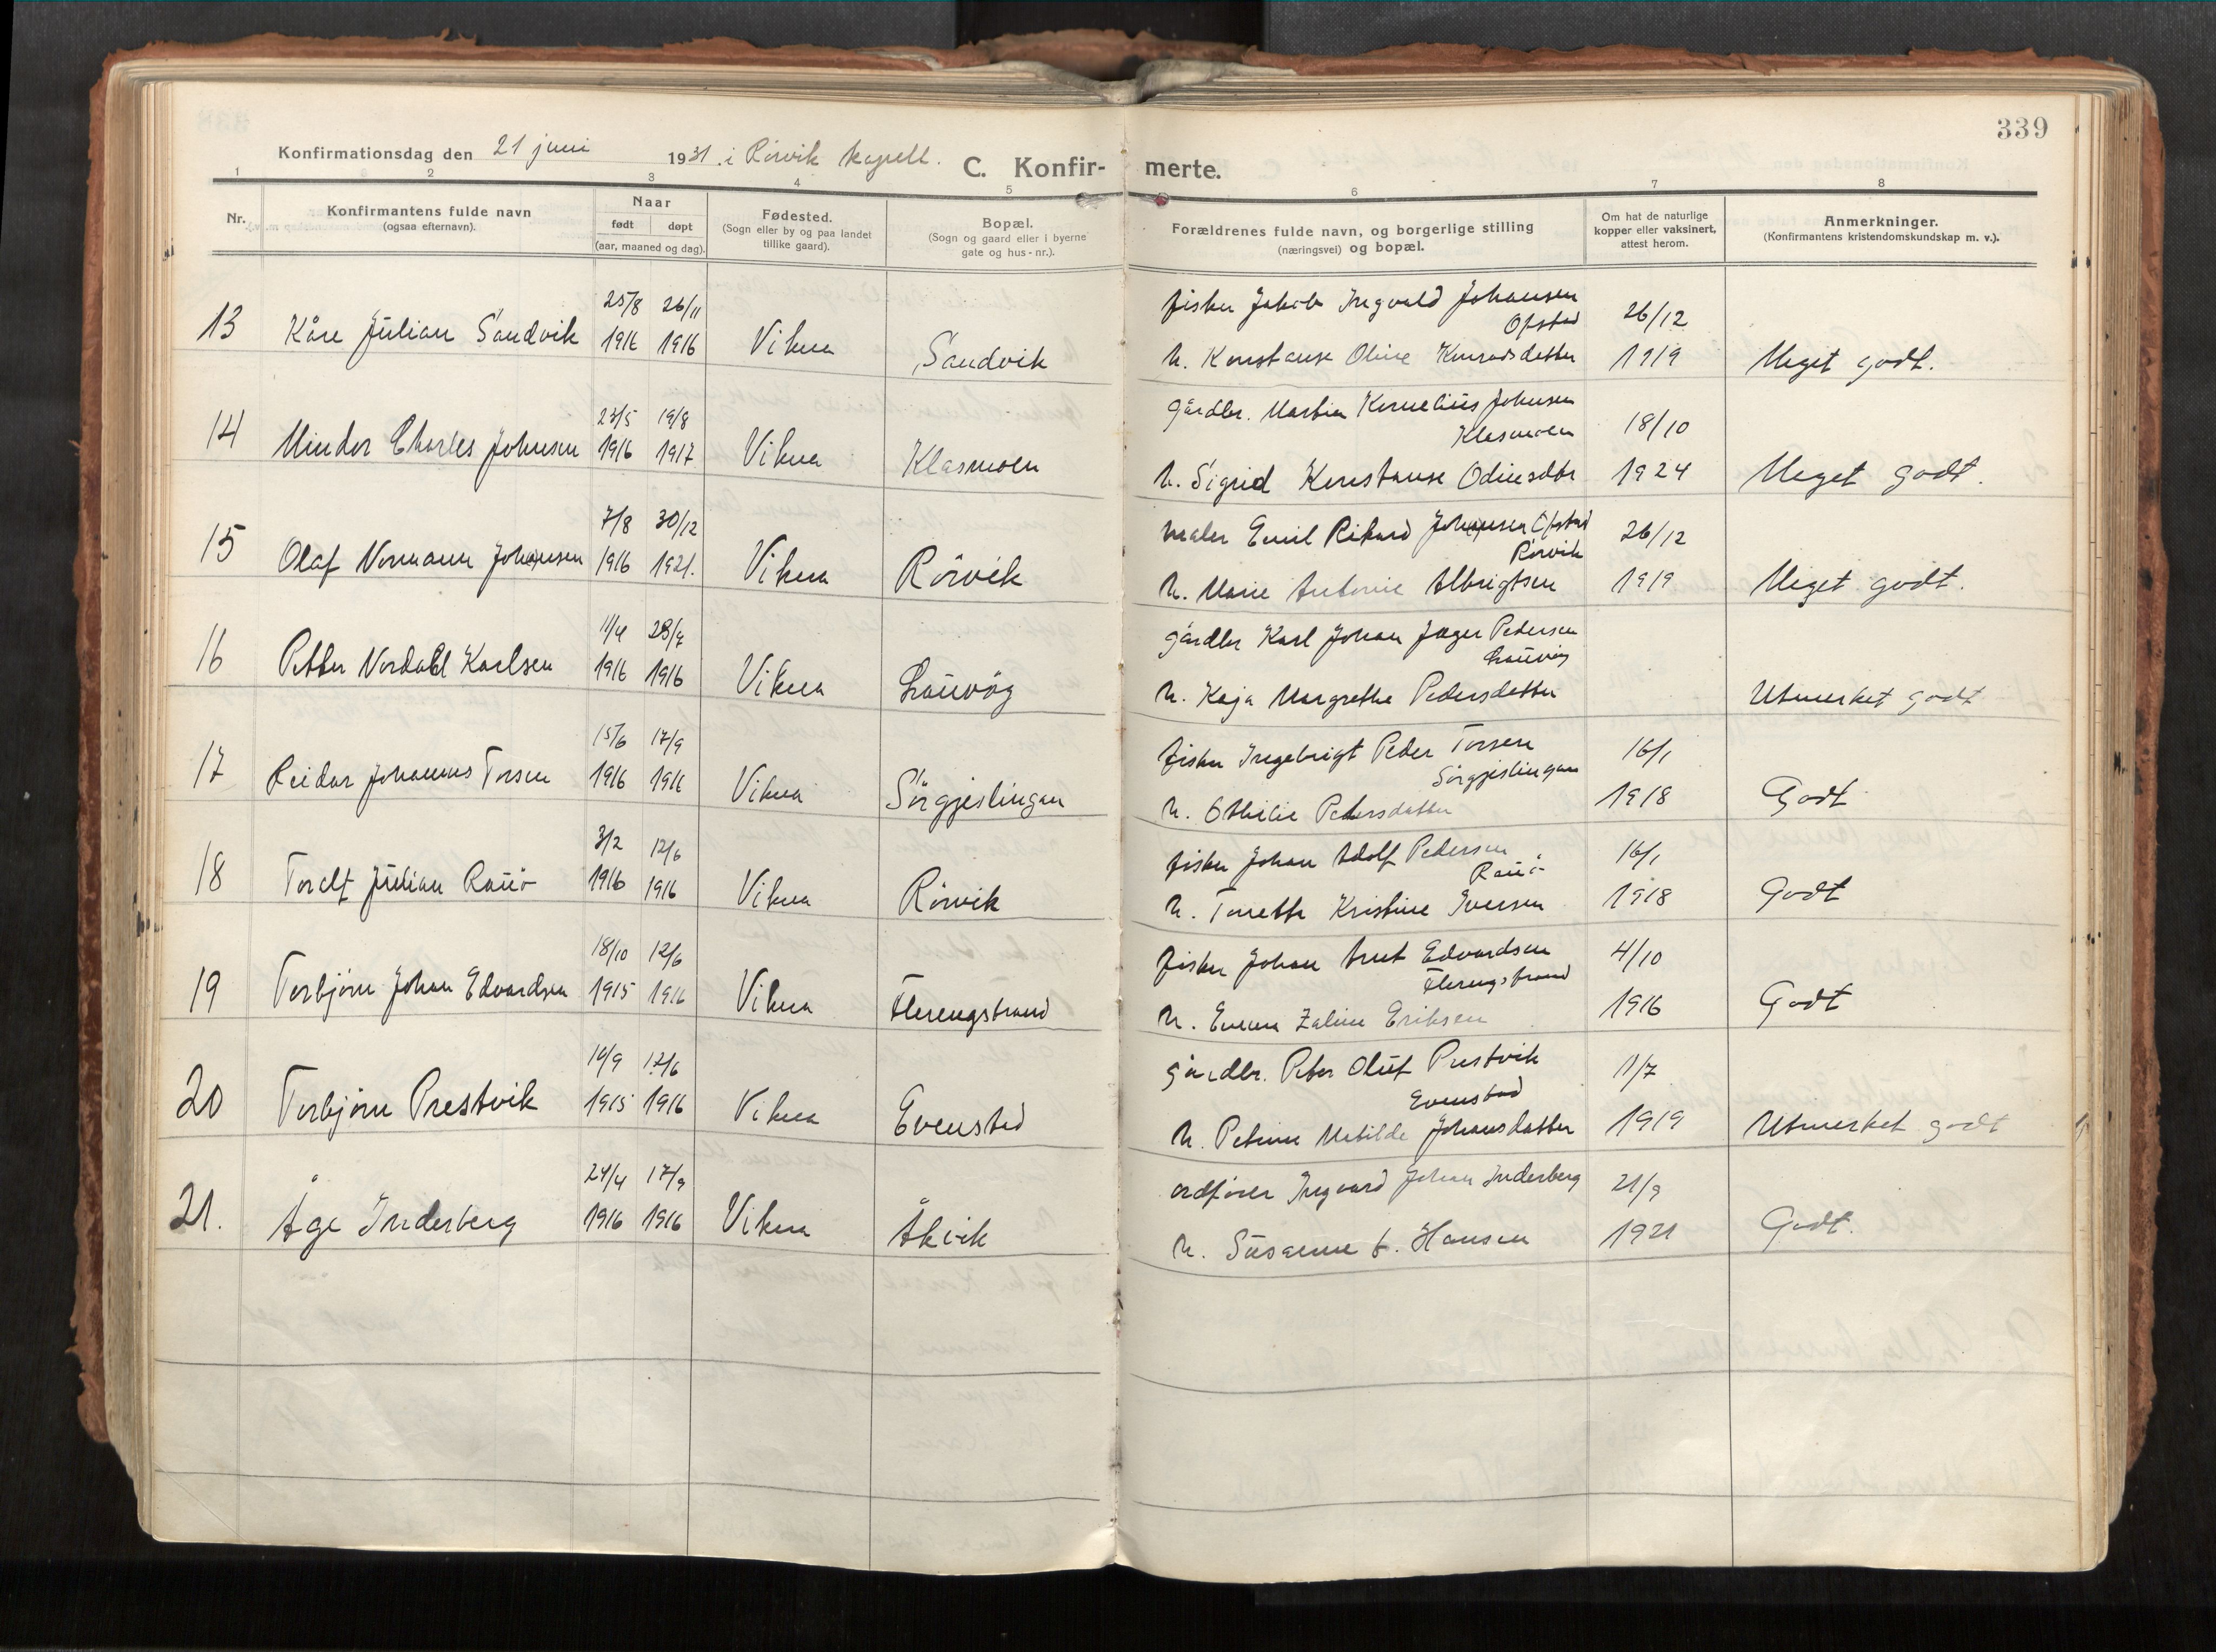 339
Konfirmationsdag den 21 juni 1931. i Rörvik kapell. C. Konfir- merte.
1 2 3 4 5 6 7 8
Nr. Konfirmantens fulde navn (ogsaa efternavn). Naar født døpt (aar, maaned og dag). Fødested. (Sogn eller by og paa landet tillike gaard). Bopæl. (Sogn og gaard eller i byerne gate og hus-nr.). Forældrenes fulde navn, og borgerlige stilling (næringsvei) og bopæl. Om hat de naturlige kopper eller vaksinert, attest herom. Anmerkninger. (Konfirmantens kristendomskundskap m. v.).
25/8 26/11 fisker Jakob Ingvald Johansen
13 Kåre Julian Sandvik 1916 1916 Vikna Sandvik Ofstad 26/12
h. Konstanse Oline Konradsdatter 1919 Meget godt.
23/5 19/8 gårdbr. Martin Kornelius Johnsen
14 Mindor Charles Johnsen 1916 1917 Vikna Klasmoen Klasmoen 18/10
h. Sigrid Konstanse Odinsdtr 1924 Meget godt.
7/8 30/12 maler Emil Rikard Johansen Ofstad
15 Olaf Normann Johansen 1916 1921. Vikna Rörvik Rörvik 26/12
h. Marie Antonie Albrigtsen 1919 Meget godt.
11/4 28/7 gårdbr Karl Johan Jæger Pedersen
16 Petter Nordahl Karlsen 1916 1916 Vikna Lauvöy Lauvöy
h. Kaja Margrethe Pedersdatter Utmerket godt
15/6 17/9 fisker Ingebrigt Peder Torsen 16/1
17 Reidar Johannes Torsen 1916 1916 Vikna Sörgjeslingan Sörgjeslingan
h. Othilie Petersdatter 1918 Godt
3/2 12/6 fisker Johan Adolf Pedersen 16/1
18 Toralf Julian Rauö 1916 1916 Vikna Rörvik Rauö
h. Tonette Kristine Iversen 1918 Godt
18/10 12/6 fisker Johan Arnt Edvardsen 4/10
19 Torbjörn Johan Edvardsen 1915 1916 Vikna Flerengstrand Flerengstrand
h. Emma Zaline Eriksen 1916 Godt
10/9 12/6 gårdbr. Peter Oluf Prestvik 11/7
20 Torbjörn Prestvik 1915 1916 Vikna Evenstad Evenstad
h. Petrine Matilde Johansdatter 1919 Utmerket godt
24/4 17/9 ordförer Ingvard Johan Inderberg 21/9
21. Åge Inderberg 1916 1916 Vikna Åkvik
h. Susanne f. Hansen 1921 Godt.